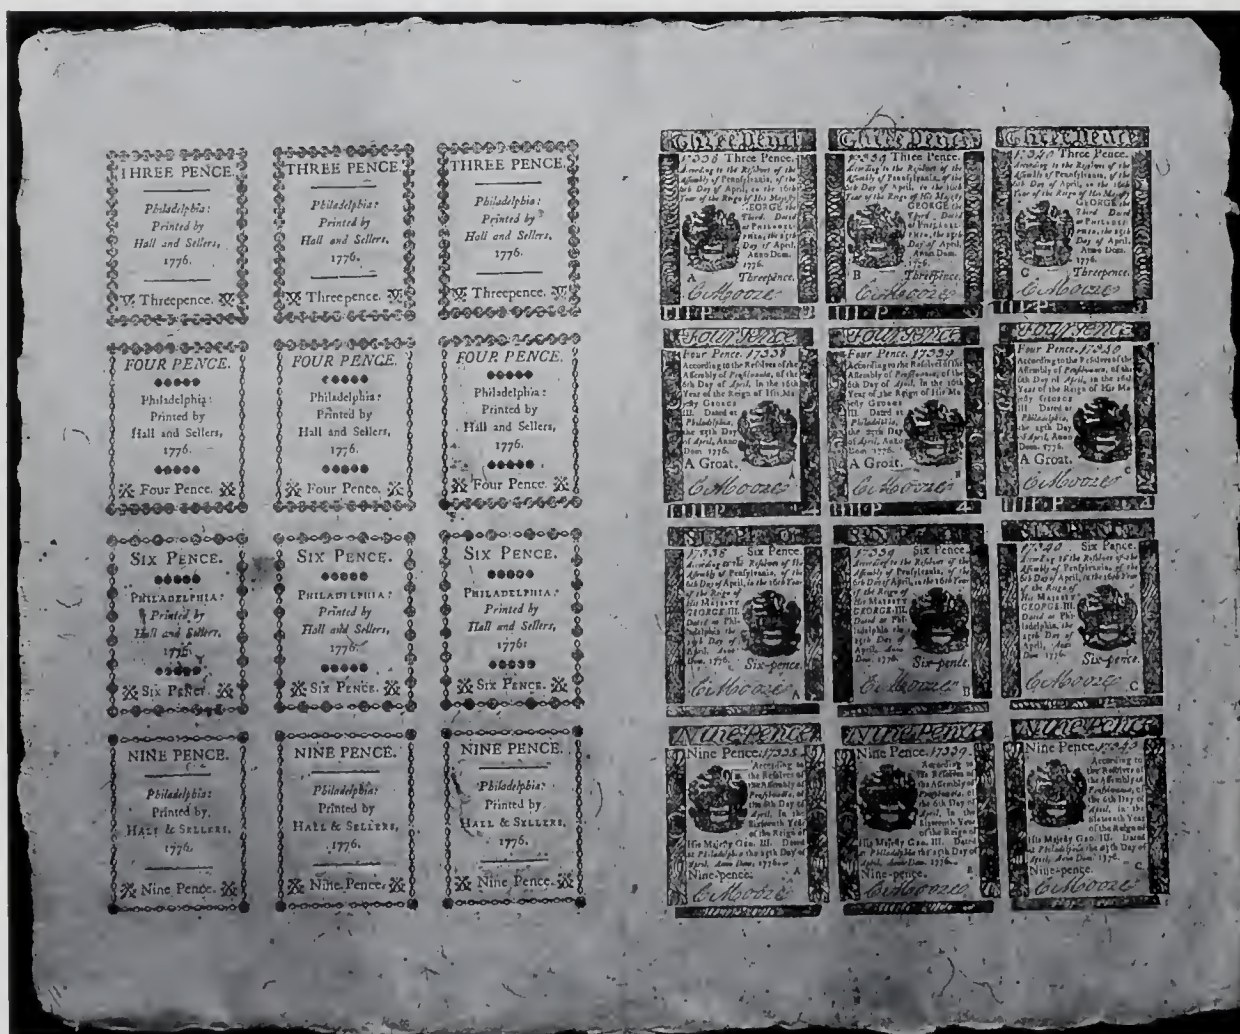 THREE PENCE.
Philadelphia:
Printed by
Hall and Sellers,
1776.
Threepence.
THREE PENCE.
Philadelphia:
Printed by
Hall and Sellers,
1776.
Threepence.
THREE PENCE.
Philadelphia:
Printed by
Hall and Sellers,
1776.
Threepence.
FOUR PENCE.
Philadelphia:
Printed by
Hall and Sellers,
1776.
Four Pence.
FOUR PENCE.
Philadelphia:
Printed by
Hall and Sellers,
1776.
Four Pence.
FOUR PENCE.
Philadelphia:
Printed by
Hall and Sellers,
1776.
Four Pence.
SIX PENCE.
PHILADELPHIA:
Printed by
Hall and Sellers,
1776.
SIX PENCE.
SIX PENCE.
PHILADELPHIA:
Printed by
Hall and Sellers,
1776.
SIX PENCE.
SIX PENCE.
PHILADELPHIA:
Printed by
Hall and Sellers,
1776.
SIX PENCE.
NINE PENCE.
Philadelphia:
Printed by
HALL & SELLERS,
1776.
Nine Pence.
NINE PENCE.
Philadelphia:
Printed by
HALL & SELLERS,
1776.
Nine Pence.
NINE PENCE.
Philadelphia:
Printed by
HALL & SELLERS,
1776.
Nine Pence.
Three Pence
17338 Three Pence.
According to the Resolves of the
Assembly of Pennsylvania, of the
6th Day of April, in the 16th
Year of the Reign of His Majesty
GEORGE the
Third. Dated
at PHILADEL-
PHIA, the 25th
Day of April,
Anno Dom.
1776.
A Threepence.
C Moore
III P 3
Three Pence
17339 Three Pence.
According to the Resolves of the
Assembly of Pennsylvania, of the
6th Day of April, in the 16th
Year of the Reign of His Majesty
GEORGE the
Third. Dated
at PHILADEL-
PHIA, the 25th
Day of April,
Anno Dom.
1776.
B Threepence.
C Moore
III P 3
Three Pence
17340 Three Pence.
According to the Resolves of the
Assembly of Pennsylvania, of the
6th Day of April, in the 16th
Year of the Reign of His Majesty
GEORGE the
Third. Dated
at PHILADEL-
PHIA, the 25th
Day of April,
Anno Dom.
1776.
C Threepence.
C Moore
III P 3
Four Pence
Four Pence. 17338
According to the Resolves of the
Assembly of Pennsylvania, of the
6th Day of April, in the 16th
Year of the Reign of His Ma-
jesty GEORGE
III. Dated at
Philadelphia,
the 25th Day
of April, Anno
Dom. 1776.
A Groat. A
C Moore
IIII P 4
Four Pence
Four Pence. 17339
According to the Resolves of the
Assembly of Pennsylvania, of the
6th Day of April, in the 16th
Year of the Reign of His Ma-
jesty GEORGE
III. Dated at
Philadelphia,
the 25th Day
of April, Anno
Dom. 1776.
A Groat. B
C Moore
IIII P 4
Four Pence
Four Pence. 17340
According to the Resolves of the
Assembly of Pennsylvania, of the
6th Day of April, in the 16th
Year of the Reign of His Ma-
jesty GEORGE
III. Dated at
Philadelphia,
the 25th Day
of April, Anno
Dom. 1776.
A Groat. C
C Moore
IIII P 4
SIX PENCE
17338 Six Pence.
According to the Resolves of the
Assembly of Pennsylvania, of the
6th Day of April, in the 16th Year
of the Reign of
His MAJESTY
GEORGE III.
Dated at Phi-
ladelphia, the
25th Day of
April, Anno
Dom. 1776.
Six-pence.
C Moore A
SIX PENCE
17339 Six Pence.
According to the Resolves of the
Assembly of Pennsylvania, of the
6th Day of April, in the 16th Year
of the Reign of
His MAJESTY
GEORGE III.
Dated at Phi-
ladelphia the
25th Day of
April, Anno
Dom. 1776.
Six-pence.
C Moore B
SIX PENCE
17340 Six Pence.
According to the Resolves of the
Assembly of Pennsylvania, of the
6th Day of April, in the 16th Year
of the Reign of
His MAJESTY
GEORGE III.
Dated at Phi-
ladelphia, the
25th Day of
April, Anno
Dom. 1776.
Six-pence.
C Moore C
Nine Pence
Nine Pence. 17338
According to
the Resolves of
the Assembly of
Pennsylvania, of
the 6th Day of
April, in the
Sixteenth Year
of the Reign of
His Majesty GEO. III. Dated
at Philadelphia the 25th Day of
April, Anno Dom. 1776.
Nine-pence. A
C Moore
Nine Pence
Nine Pence. 17339
According to
the Resolves of
the Assembly of
Pennsylvania, of
the 6th Day of
April, in the
Sixteenth Year
of the Reign of
His Majesty GEO. III. Dated
at Philadelphia the 25th Day of
April, Anno Dom. 1776.
Nine-pence. B
C Moore
Nine Pence
Nine Pence. 17340
According to
the Resolves of
the Assembly of
Pennsylvania, of
the 6th Day of
April, in the
Sixteenth Year
of the Reign of
His Majesty GEO. III. Dated
at Philadelphia the 25th Day of
April, Anno Dom. 1776.
Nine-pence. C
C Moore